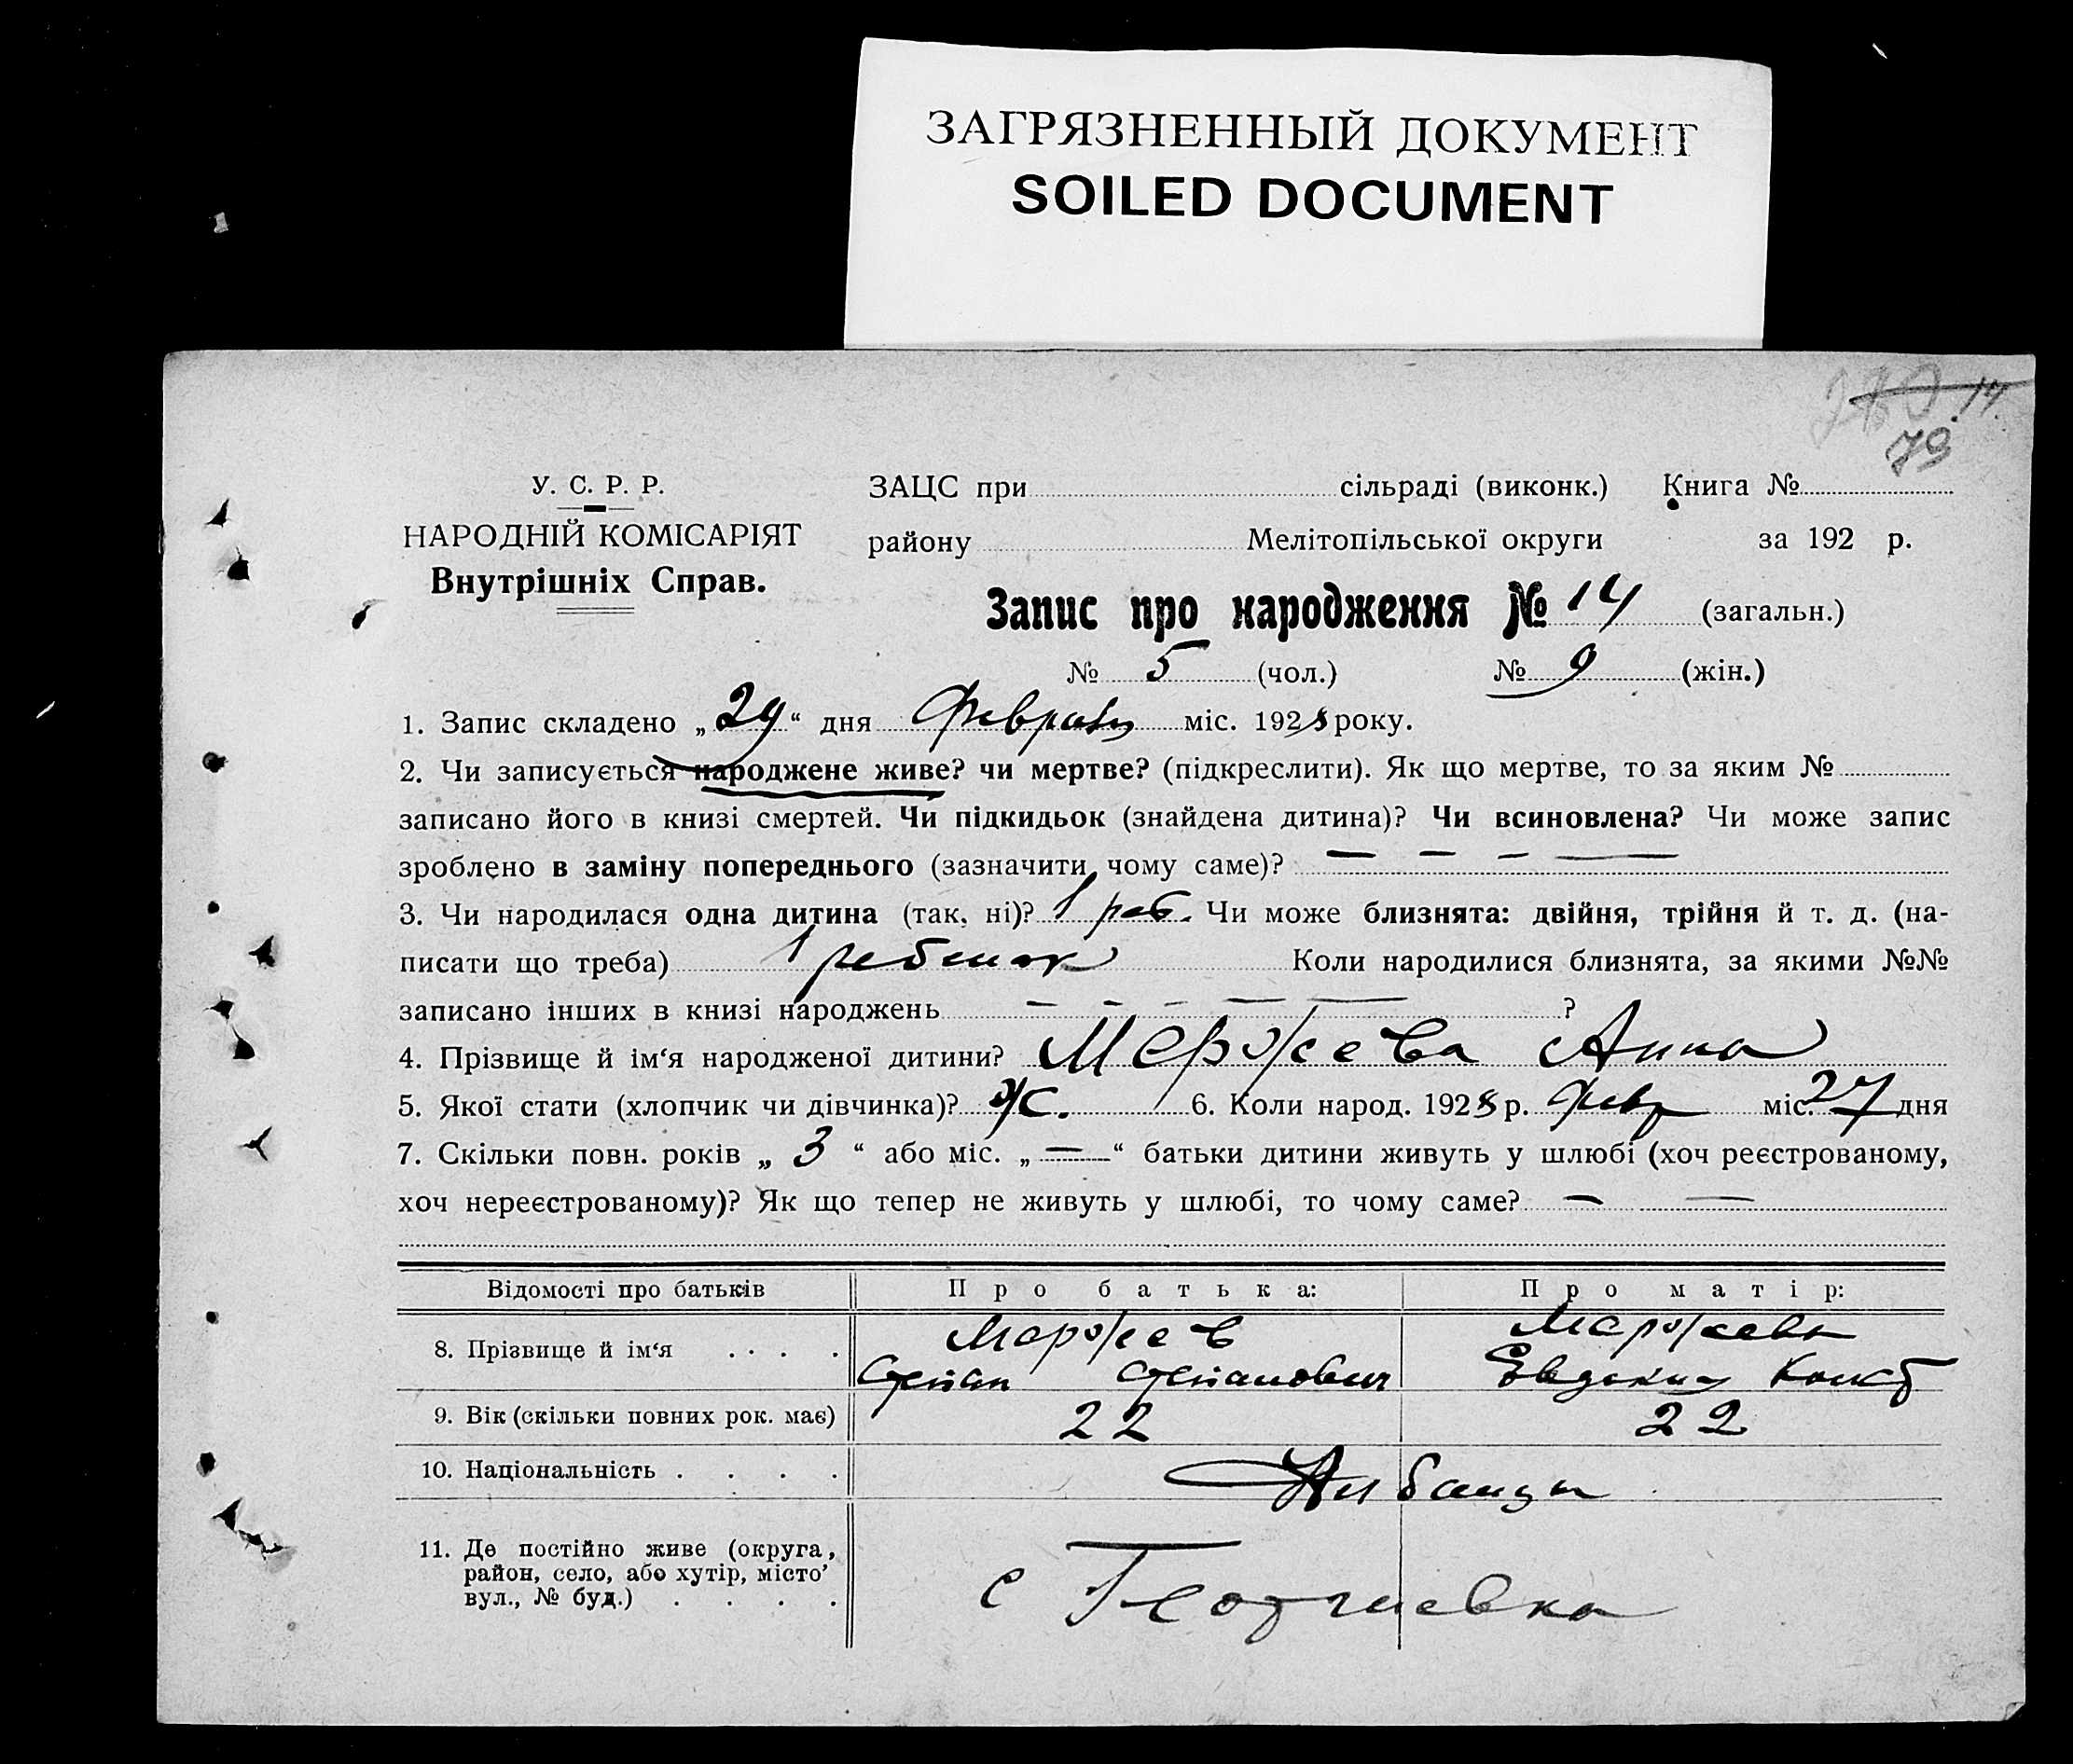 ЗАГРЯЗНЕННЫЙ ДОКУМЕНТ
SOILED DOCUMENT
14.
79
У. С. Р. Р.
НАРОДНІЙ КОМІСАРІЯТ
Внутрішніх Справ.
ЗАЦС при сільраді (виконк.) Книга №
району Мелітопільської округи за 192 р.
Запис про народження № 14 (загальн.)
№ 5 (чол.) № 9 (жін.)
1. Запис складено „29“ дня Февраля міс. 1928 року.
2. Чи записується народжене живе? чи мертве? (підкреслити). Як що мертве, то за яким №
записано його в книзі смертей. Чи підкидьок (знайдена дитина)? Чи всиновлена? Чи може запис
зроблено в заміну попереднього (зазначити чому саме)? — — — —
3. Чи народилася одна дитина (так, ні)? 1 реб. Чи може близнята: двійня, трійня й т. д. (на-
писати що треба) 1 ребенок Коли народилися близнята, за якими №№
записано інших в книзі народжень — — — — — ?
4. Прізвище й ім‘я народженої дитини? Мержева Анна
5. Якої стати (хлопчик чи дівчинка)? ж. 6. Коли народ. 1928 р. февр міс. 27 дня
7. Скільки повн. років „ 3 “ або міс. „ — “ батьки дитини живуть у шлюбі (хоч реєстрованому,
хоч нереєстрованому)? Як що тепер не живуть у шлюбі, то чому саме? — —
Відомості про батьків Про батька: Про матір:
8. Прізвище й ім‘я . . . . Мержев Степан Степанович Мержева Евдокия Конст
9. Вік (скільки повних рок. має) 22 22
10. Національність . . . . Албанцы
11. Де постійно живе (округа,
район, село, або хутір, місто’
вул., № буд.) . . . .
с Георгиевка